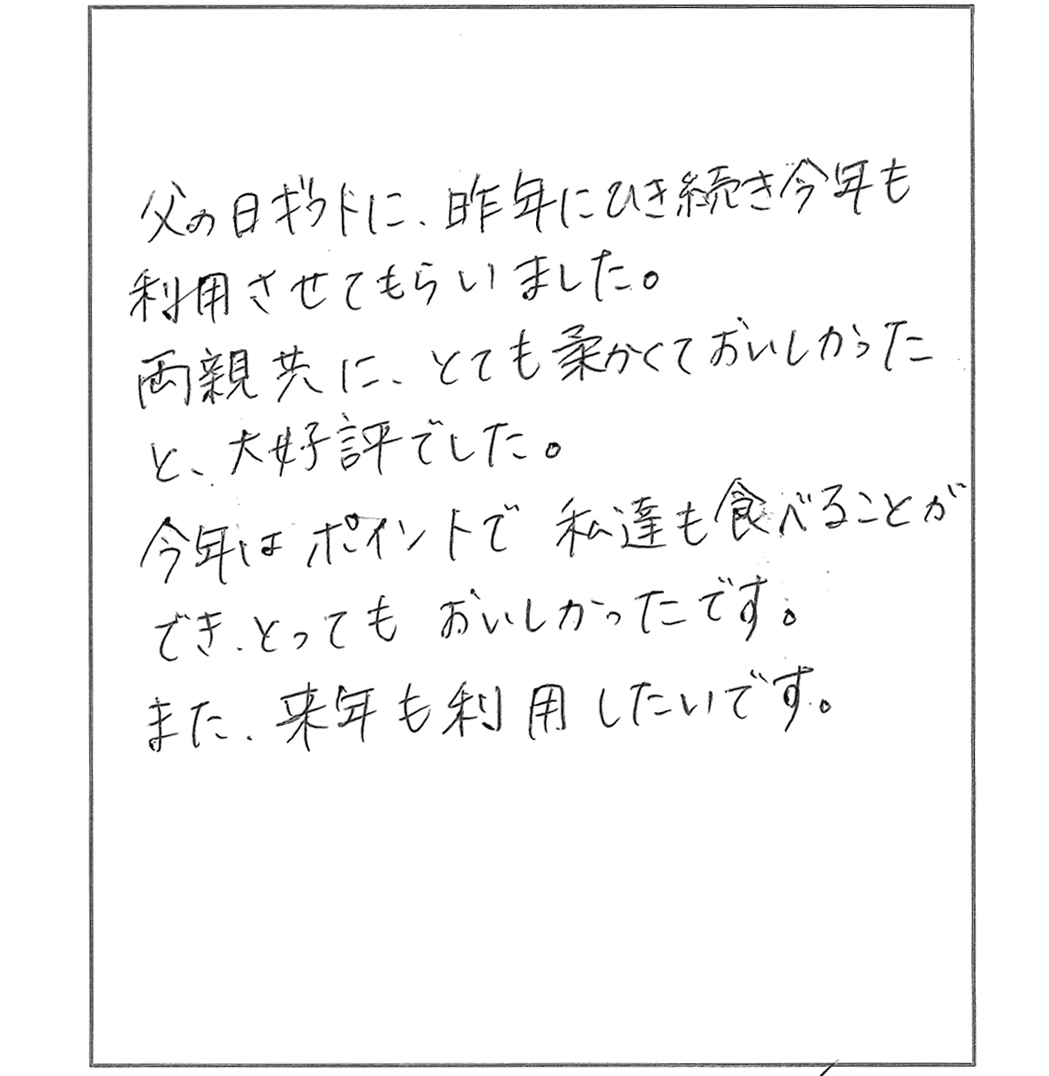 父の日ギフトに、昨年にひき続き今年も
利用させてもらいました。
両親共に、とても柔かくておいしかった
と、大好評でした。
今年はポイントで私達も食べることが
でき、とってもおいしかったです。
また、来年も利用したいです。